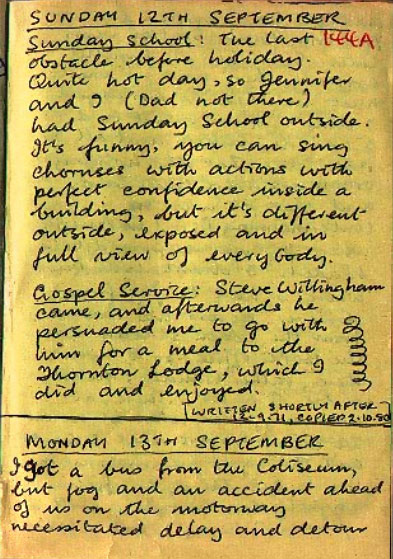 SUNDAY 12TH SEPTEMBER
Sunday School: The last 144A
obstacle before holiday.
Quite hot day, so Jennifer
and I (Dad not there)
had Sunday School outside.
It's funny, you can sing
choruses with actions with
perfect confidence inside a
building, but it's different
outside, exposed and in
full view of everybody.
Gospel Service: Steve Willingham
came, and afterwards he
persuaded me to go with
him for a meal to the
Thornton Lodge, which I
did and enjoyed.
[WRITTEN SHORTLY AFTER
12-9-71, COPIED 2-10-80]
MONDAY 13TH SEPTEMBER
I got a bus from the Coliseum,
but fog and an accident ahead
of us on the motorway
necessitated delay and detour